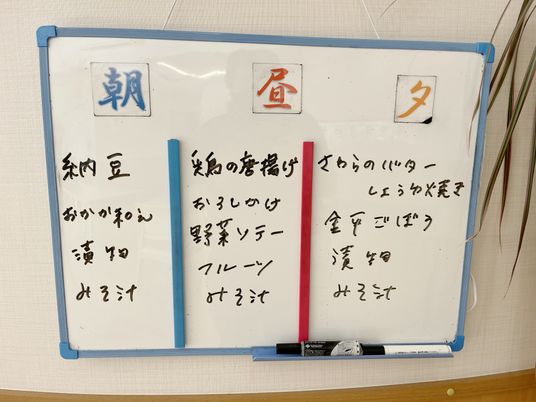 朝
納豆
おかか和え
漬物
みそ汁
昼
鶏の唐揚げ
おろしかけ
野菜ソテー
フルーツ
みそ汁
夕
さわらのバター
しょうゆ焼き
金平ごぼう
漬物
みそ汁